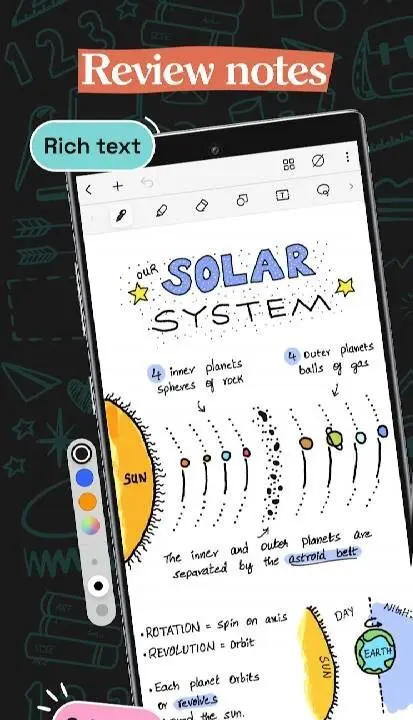 Review notes
Rich text
OUR
SOLAR
SYSTEM
4 inner planets
spheres of rock
4 outer planets
balls of gas
SUN
The inner and outer planets are
separated by the astroid belt
• ROTATION = spin on axis
• REVOLUTION = orbit
• Each planet orbits
or revolves
the sun.
SUN
DAY
EARTH